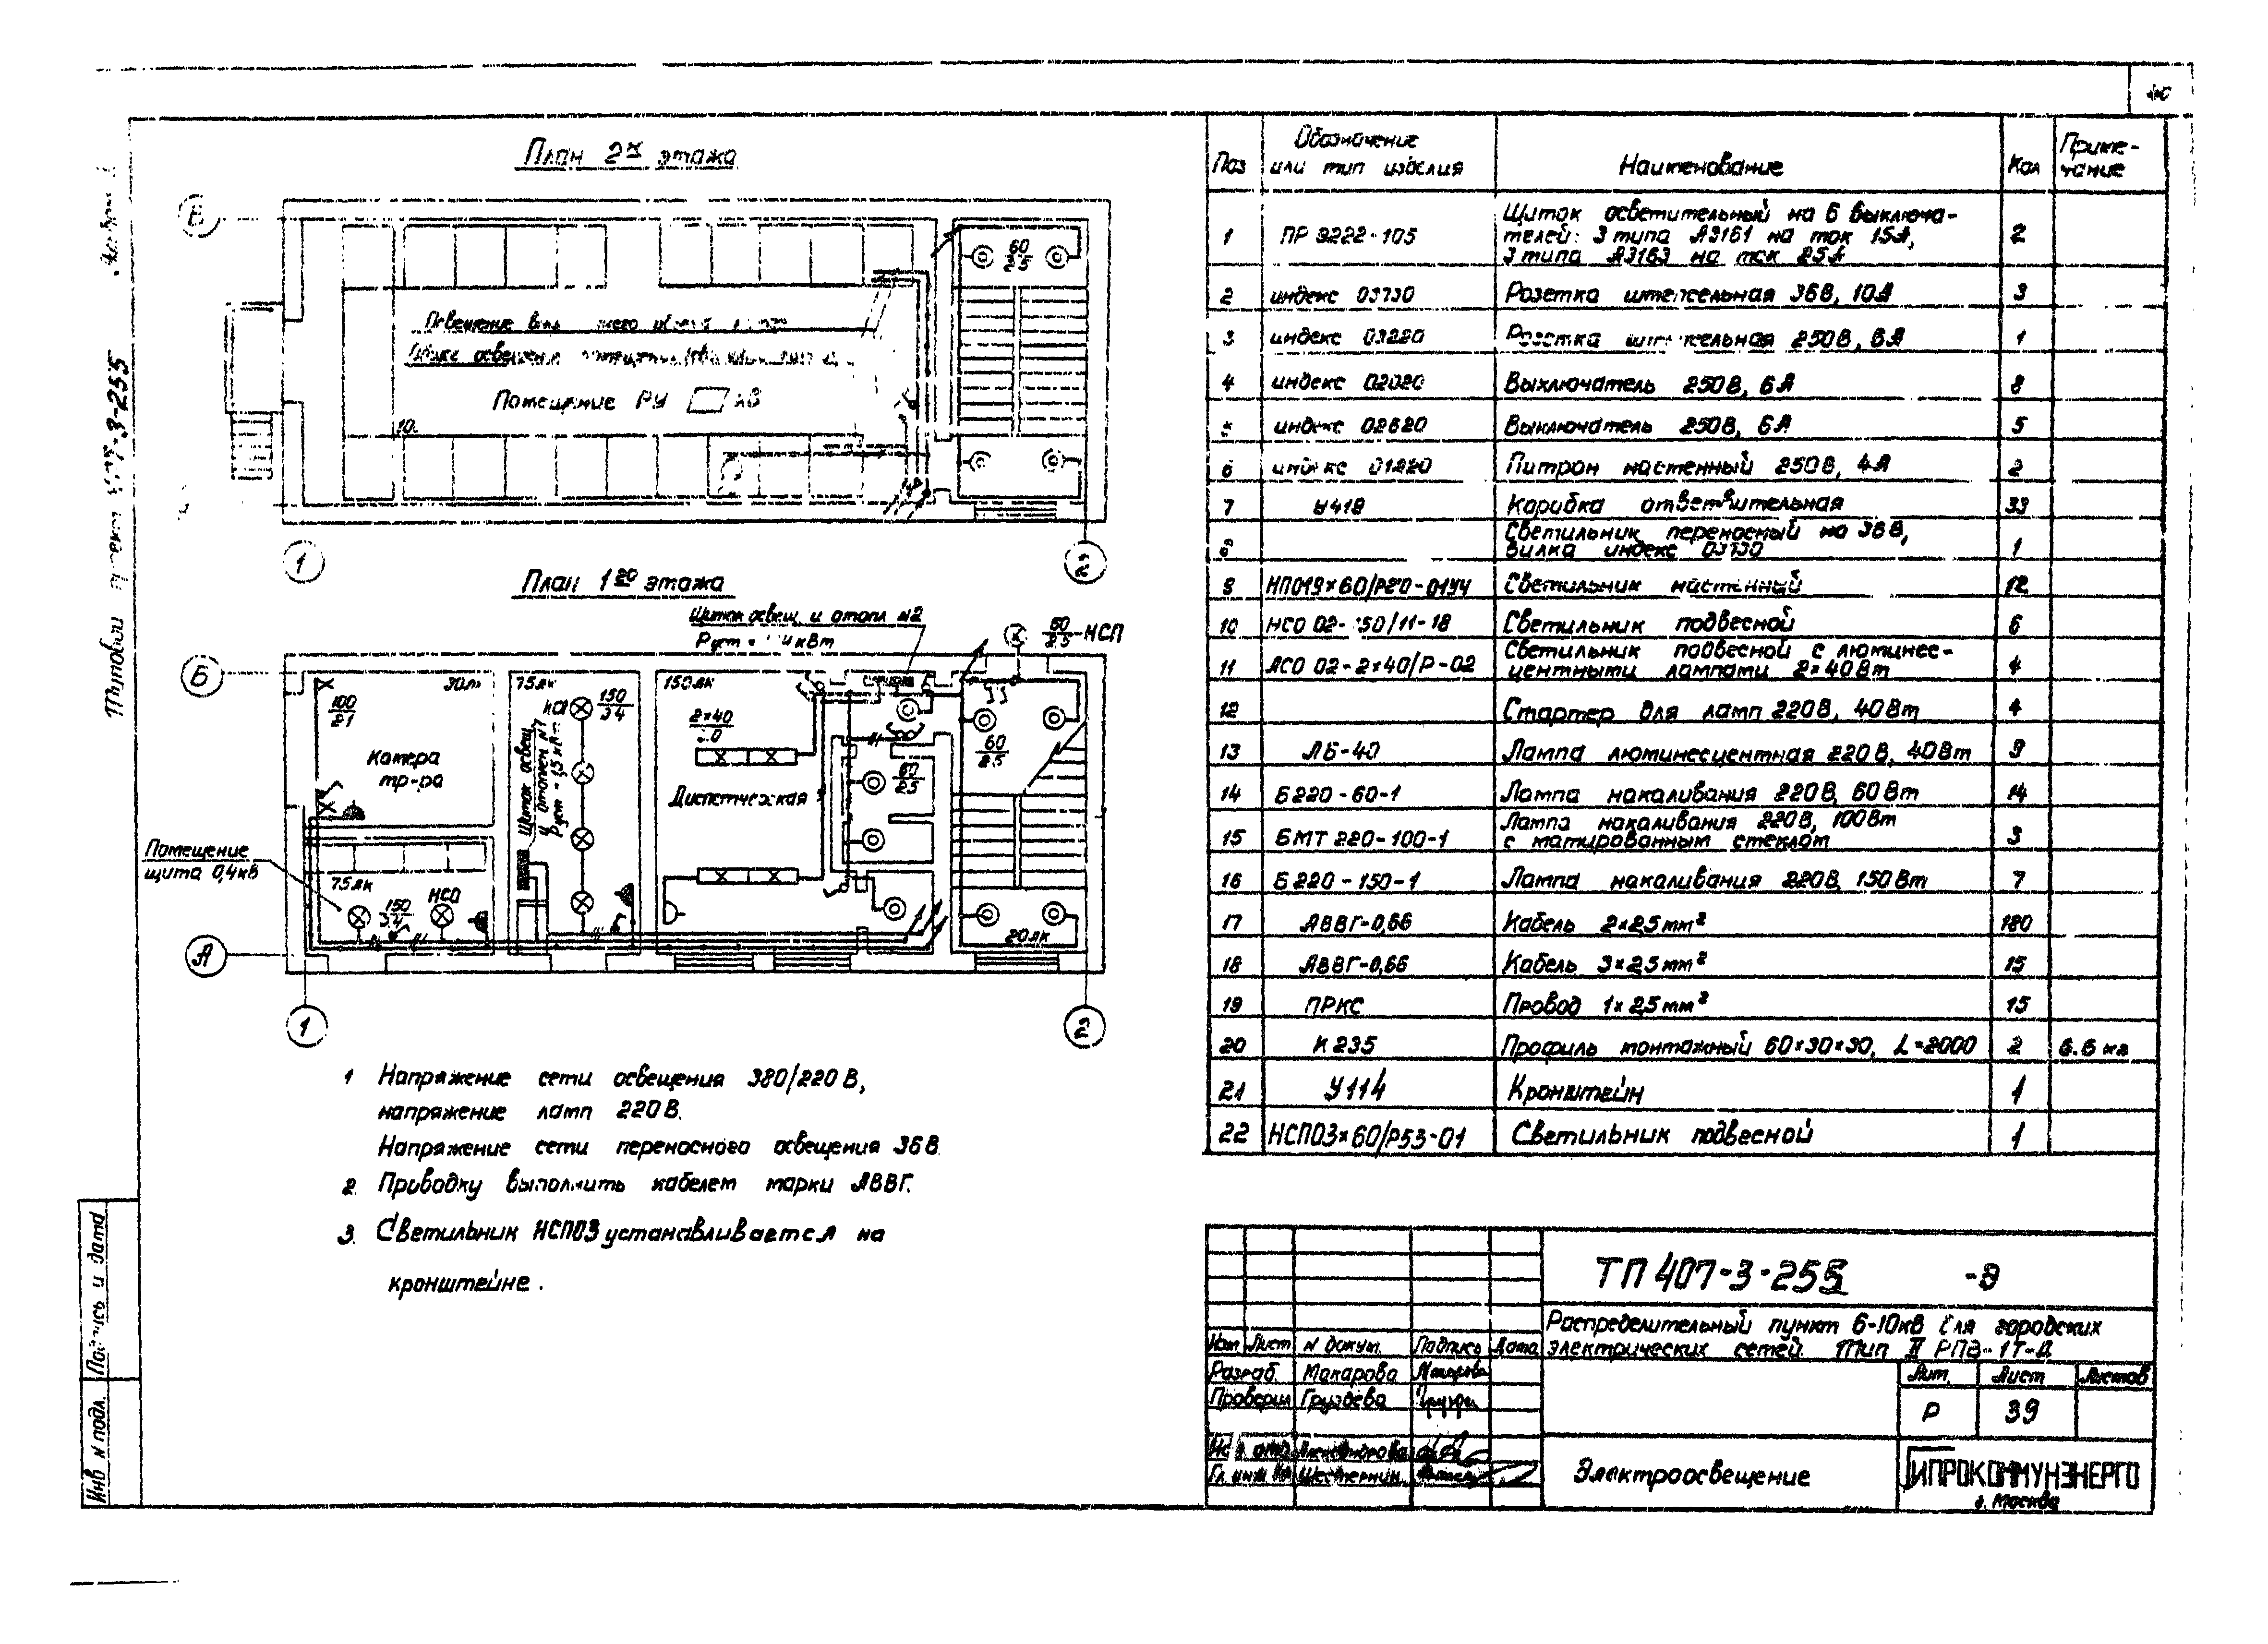 40
План 2го этажа
В
60
2.5
Помещение РУ кВ
1
2
План 1го этажа
Щиток освещ. и отопл. N2
60
2.5
НСП
Б
30лк
75лк
150лк
100
2.1
НСО
150
3.4
2×40
Камера
тр-ра
Щиток освещ.
и отоплен. N1
Диспетчерская
60
2.5
60
2.5
Помещение
щита 0,4кВ
75лк
НСО
150
3.4
20лк
А
1
2
1 Напряжение сети освещения 380/220 В,
напряжение ламп 220 В.
Напряжение сети переносного освещения 36 В.
2. Проводку выполнить кабелем марки АВВГ.
3. Светильник НСП03 устанавливается на
кронштейне.
Поз Обозначение или тип изделия Наименование Кол Приме-чание
1 ПР 9222-105 Щиток осветительный на 6 выключа-
телей: 3 типа А3161 на ток 15А, 2
3 типа А3163 на ток 25А
2 индекс 03730 Розетка штепсельная 36В, 10А 3
3 индекс 03220 Розетка штепсельная 250В, 6А 1
4 индекс 02020 Выключатель 250В, 6А 8
5 индекс 02620 Выключатель 250В, 6А 5
6 индекс 01220 Патрон настенный 250В, 4А 2
7 У419 Коробка ответвительная 33
8 Светильник переносный на 36В,
вилка индекс 03730 1
9 НПО19×60/Р20-01У4 Светильник настенный 12
10 НСО 02-150/11-18 Светильник подвесной 6
11 ЛСО 02-2×40/Р-02 Светильник подвесной с люминес-
центными лампами 2×40Вт 4
12 Стартер для ламп 220В, 40Вт 4
13 ЛБ-40 Лампа люминесцентная 220В, 40Вт 9
14 Б220-60-1 Лампа накаливания 220В, 60Вт 14
15 БМТ 220-100-1 Лампа накаливания 220В, 100Вт
с матированным стеклом 3
16 Б220-150-1 Лампа накаливания 220В, 150Вт 7
17 АВВГ-0,66 Кабель 2×2,5мм² 180
18 АВВГ-0,66 Кабель 3×2,5мм² 15
19 ПРКС Провод 1×2,5мм² 15
20 К235 Профиль монтажный 60×30×30, L=2000 2 6.6 кг
21 У114 Кронштейн 1
22 НСП03×60/Р53-01 Светильник подвесной 1
ТП 407-3-255 -Э
Распределительный пункт 6-10кВ для городских
электрических сетей. Тип II РПВ-1Т-Д
Изм Лист N докум. Подпись Дата
Разраб. Макарова
Проверил Груздева
Гл. инж. Шестернин
Лит. Лист Листов
Р 39
Электроосвещение
ГИПРОКОММУНЭНЕРГО
г. Москва
Типовой проект 407-3-255
Подпись и дата
Инв N подл.